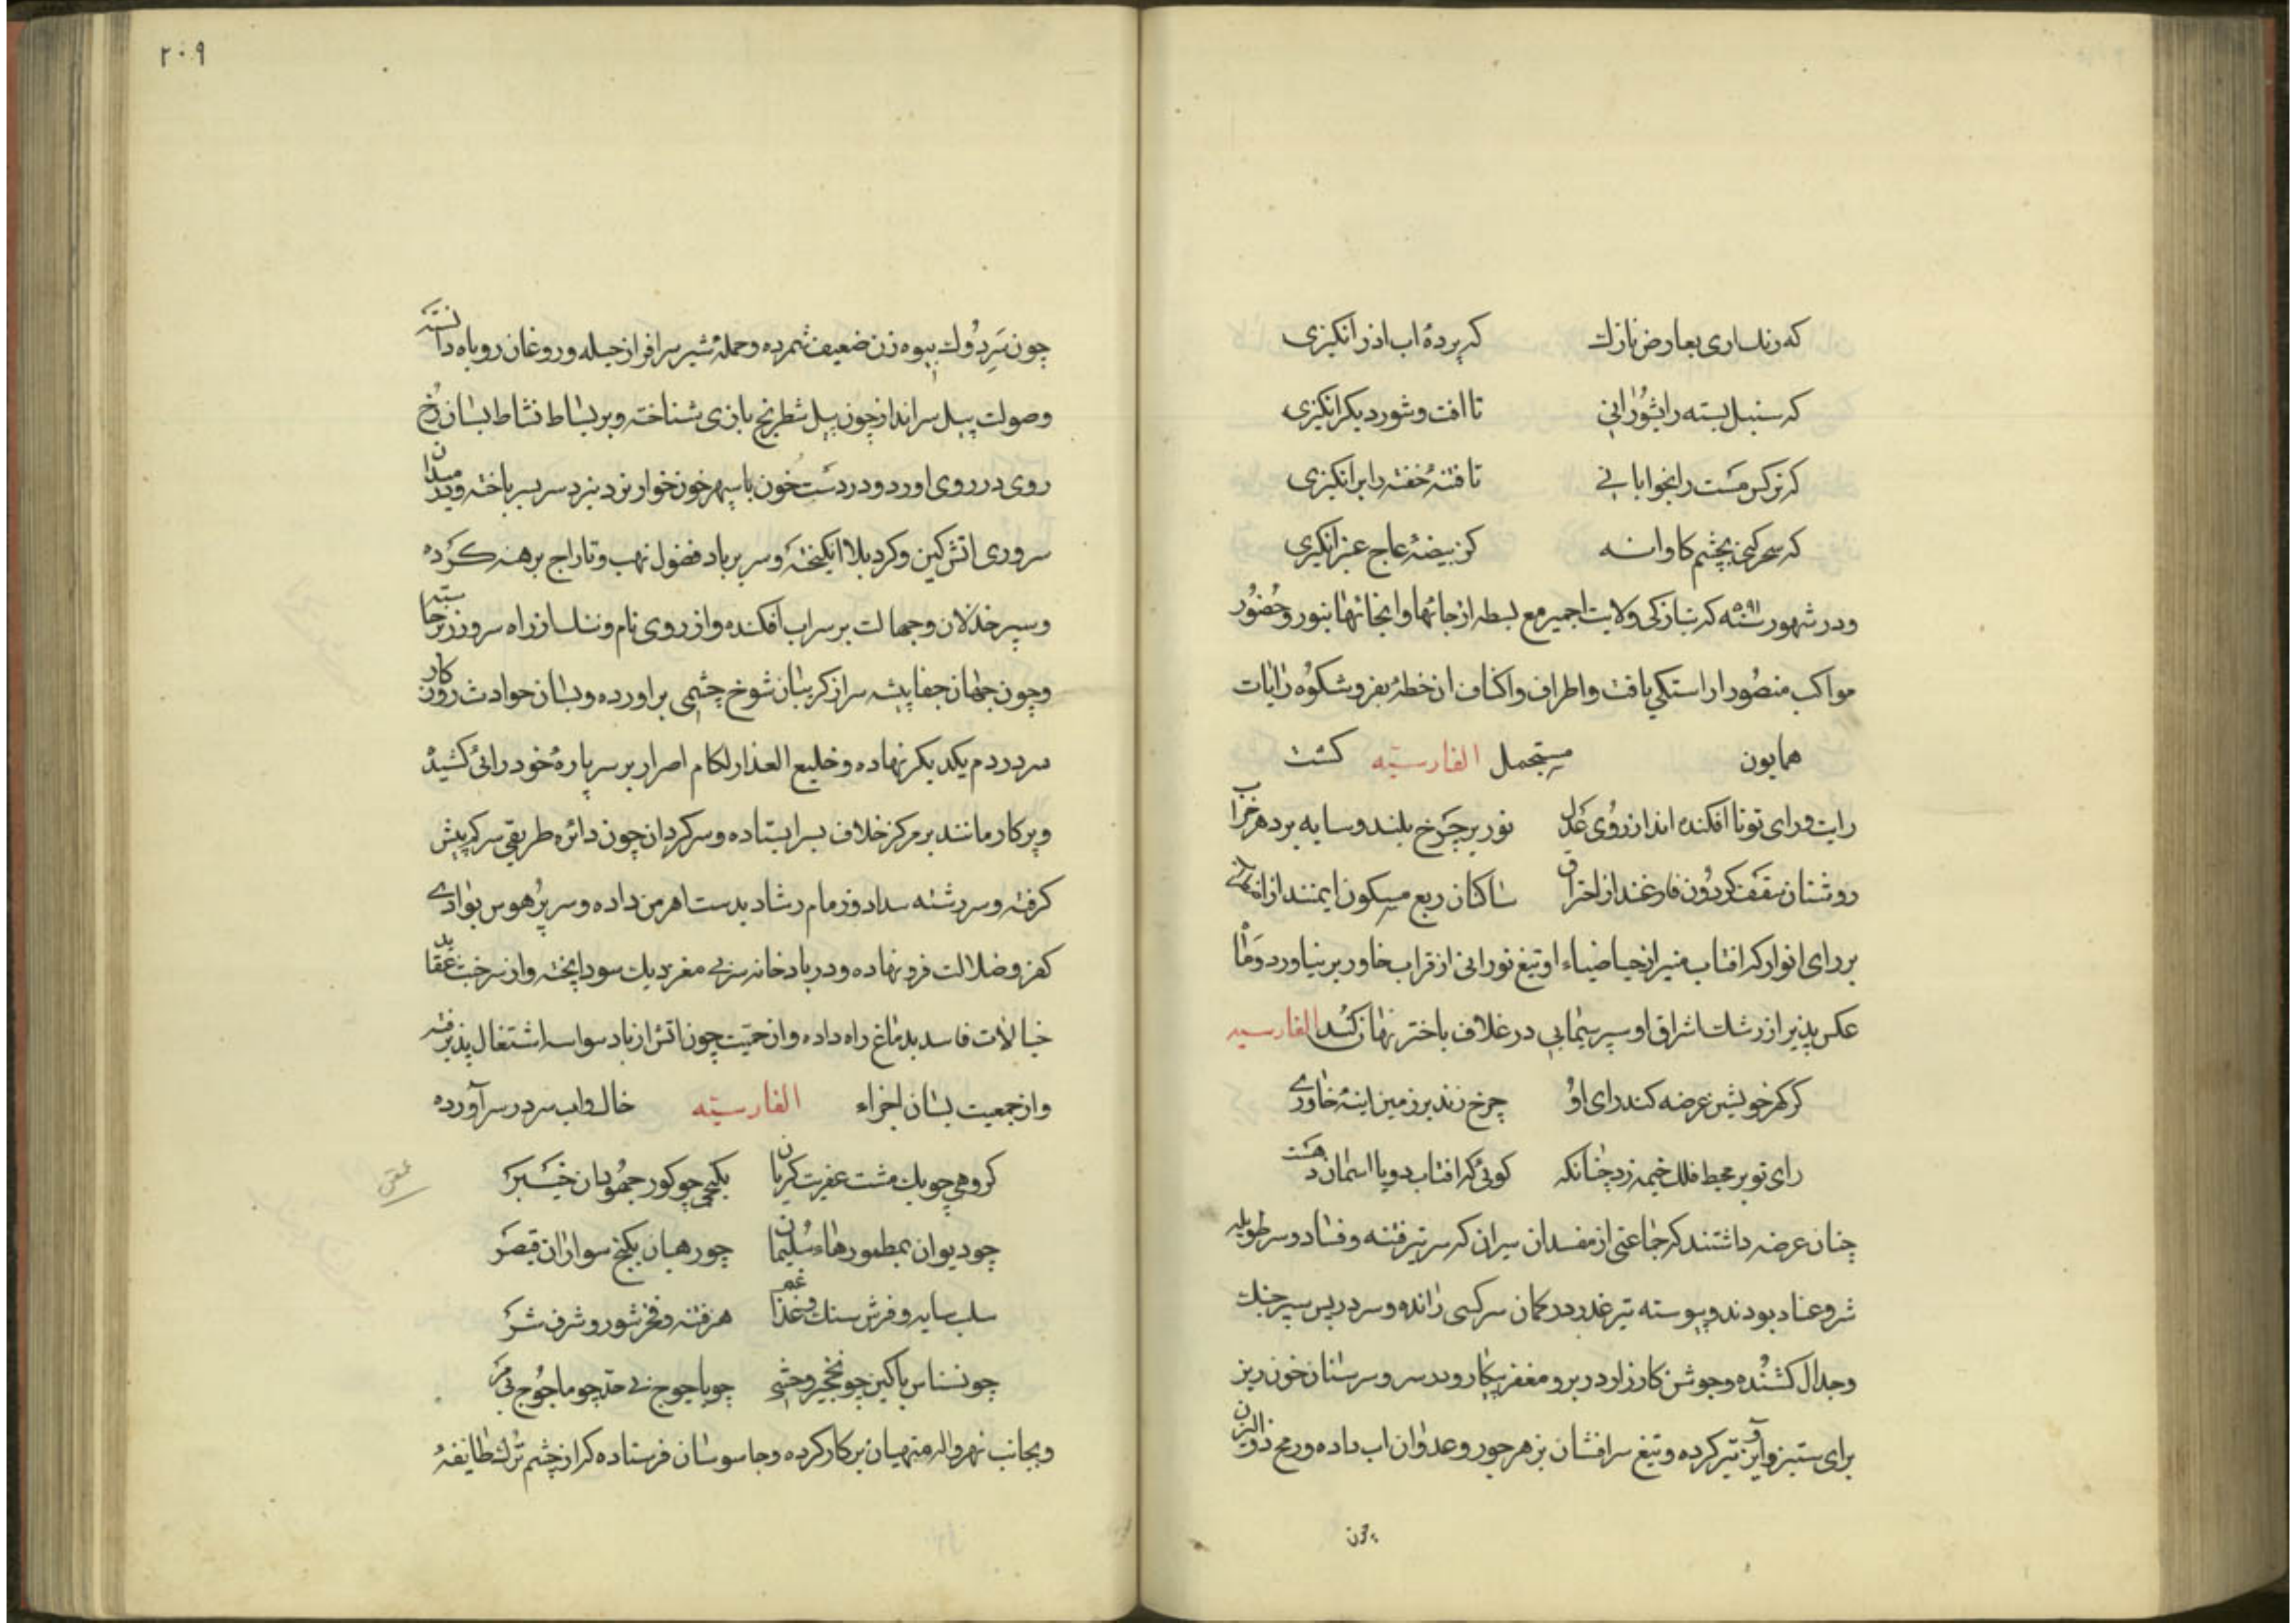 که رنك اری بعارض نازك که پردهٔ اب اذر انكیزی
که سنبل بسته را بشورانی تا افت وشور دیكر انكیزی
که نركس مست را بخوابانی تا فتنهٔ خفته را بر انكیزی
که سحر کنی بچشم کز بیضهٔ عاج عنبر انكیزی
ودر شهور سنه ۵۹۱ که بتازكی ولایت اجمیر مع بسطه ارجائها وانحائها بنور وحضور
مواکب منصور اراستكی یافت واطراف واکناف ان خطه بفر وشکوه رایات
همایون مستجمل الفارسیه کشت
رایت ورای تو تا افکنده اند از روی عدل نور بر چرخ بلند وسایه بر دهر خراب
روشنان سقف کردون فارغند از احتراق ساکنان ربع مسکون ایمنند از
بر رای انوار که افتاب منیر از حیا ضیاء او تیغ نورانی از قراب خاور بر نیاورد وماه
عکس پذیر از رشك اشراق او سپر سیمابی در غلاف باختر نهان کند الفارسیه
کر کهر خویشتن عرضه کند رای او چرخ زند بر زمین اینهٔ خاوری
رای تو بر محیط فلك خیمه زد چنانکه کوئی که افتاب دو با اسمان دهست
چنان عرضه داشتند که جماعتی از مفسدان سیران که سر تیر فتنه وفساد وسر طویله
شر وعناد بودند وپیوسته تیر غدر در کمان سرکسی رانده وسر در پس سپر جنك
وجدال کشنده وجوشن کارزار در بر ومغفر پیکار ودر سر وسر سنان خون ریز
برای ستیز واویز تیز کرده وتیغ سرافشان بزهر جور وعدوان اب داده ورمح ذوالیزن
چون
۲۰۹
چون سر دوك بیوه زن ضعیف شمرده وحملهٔ شیر سرافراز حیله وروغان روباه دانسته
وصولت پیل سرانداز چون پیل شطرنج بازی شناخته وبر بساط نشاط بسان رخ
روی در روی اورد ودر دست خون با سپهر خون خوار نرد نبرد سر بسر باخته ومیدان
سروری اتش کین وکرد بلا انكیخته وسر بر باد فضول نهب وتاراج برهنه کرده
وسپر خذلان وجهالت بر سراب افکنده واز روی نام وننك از راه سروری برخاسته
وچون جهان جفا پیشه سر از کریبان شوخ چشمی براورده وبسان حوادث روزكار
سر در دم یكدیكر نهاده وخلیع العذار لکام اصرار بر سر بارهٔ خود رائی کشیده
وپرکار مانند بر مرکز خلاف بسر ایستاده وسرکردان چون دائره طریقی سر کم پیش
کرفته وسر رشته سداد وزمام رشاد بدست اهرمن داده وسر پر هوس بوادی
کفر وضلالت فرو نهاده ودر باد خانه سر بی مغز دیك سودا پخته واز سر خبث عقاید
خیالات فاسد بدماغ راه داده واز حمیت چون اتش از باد سواسه اشتغال پذیرفته
واز جمعیت بسان اجزاء الفارسیه خاك واب سر در سر آورده
کروهی چو یك مشت عفریت کریان بکنجی چو کور جهودان خیبر
چو دیوان بمطمورهاء سلیمان چو رهبان بکنج سواران قیصر
سلب سایه وفرش سنك وغذا غم هنر فتنه وفخر شور وشرف شر
چو نسناس باکین چو نخجیر وحشی چو یاجوج بی حد چو ماجوج بی مر
وبجانب نهرواله منهیان بر کار کرده وجاسوسان فرستاده که از چشم ترك طایفهٔ